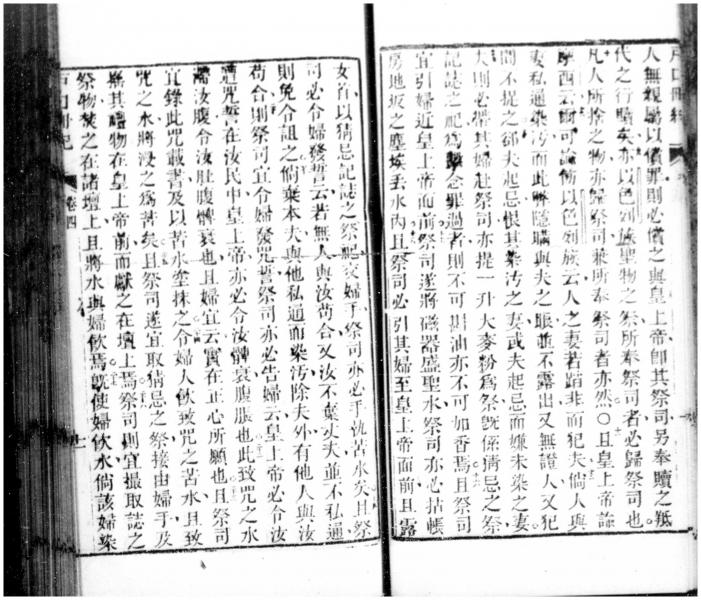 戶口冊紀
人無親屬以償罪則必償之與皇上帝卽其祭司另奉贖之羝
代之行贖矣亦以色列族聖物之祭所奉祭司者必歸祭司也
凡人所捨之物亦歸祭司兼所奉祭司者亦然○且皇上帝諭
摩西云爾可諭飭以色列族云人之妻若踏非而犯夫倘人與
妻私通染污而此弊隱瞞與夫之眼並不露出又無證人又犯
間不捉之郤夫起忌恨其染污之妻或夫起忌而嫌未染之妻
夫則必攜其婦赴祭司亦提一升大麥粉爲祭旣係猜忌之祭
記誌之祀爲繫念罪過者則不可斟油亦不可如香焉且祭司
宜引婦近皇上帝而前祭司遂將磁器盛聖水祭司亦必拈帳
房地坂之塵埃丟水內且祭司必引其婦至皇上帝面前且露
女首以猜忌記誌之祭祀交婦手祭司亦必手執苦水矣且祭
司必令婦發誓云若無人與汝苟合又汝不棄丈夫並不私通
則免令詛之倘棄本夫與他私通而染污除夫外有他人與汝
苟合則祭司宜令婦發咒誓祭司亦必告婦云皇上帝必令汝
遭咒誓在汝民中皇上帝亦必令汝髀衰腹脹也此致咒之水
瀉汝腹令汝肚腹髀衰也且婦宜云實在正心所願也且祭司
宜錄此咒載書及以苦水塗抹之令婦人飲致咒之苦水且致
咒之水將浸之爲苦矣且祭司遂宜取猜忌之祭接由婦手及
搖其禮物在皇上帝前而獻之在壇上焉祭司則宜撮取誌之
祭物焚之在諸壇上且將水與婦飲焉旣使婦飲水倘該婦染
戶口冊紀 卷四 十一